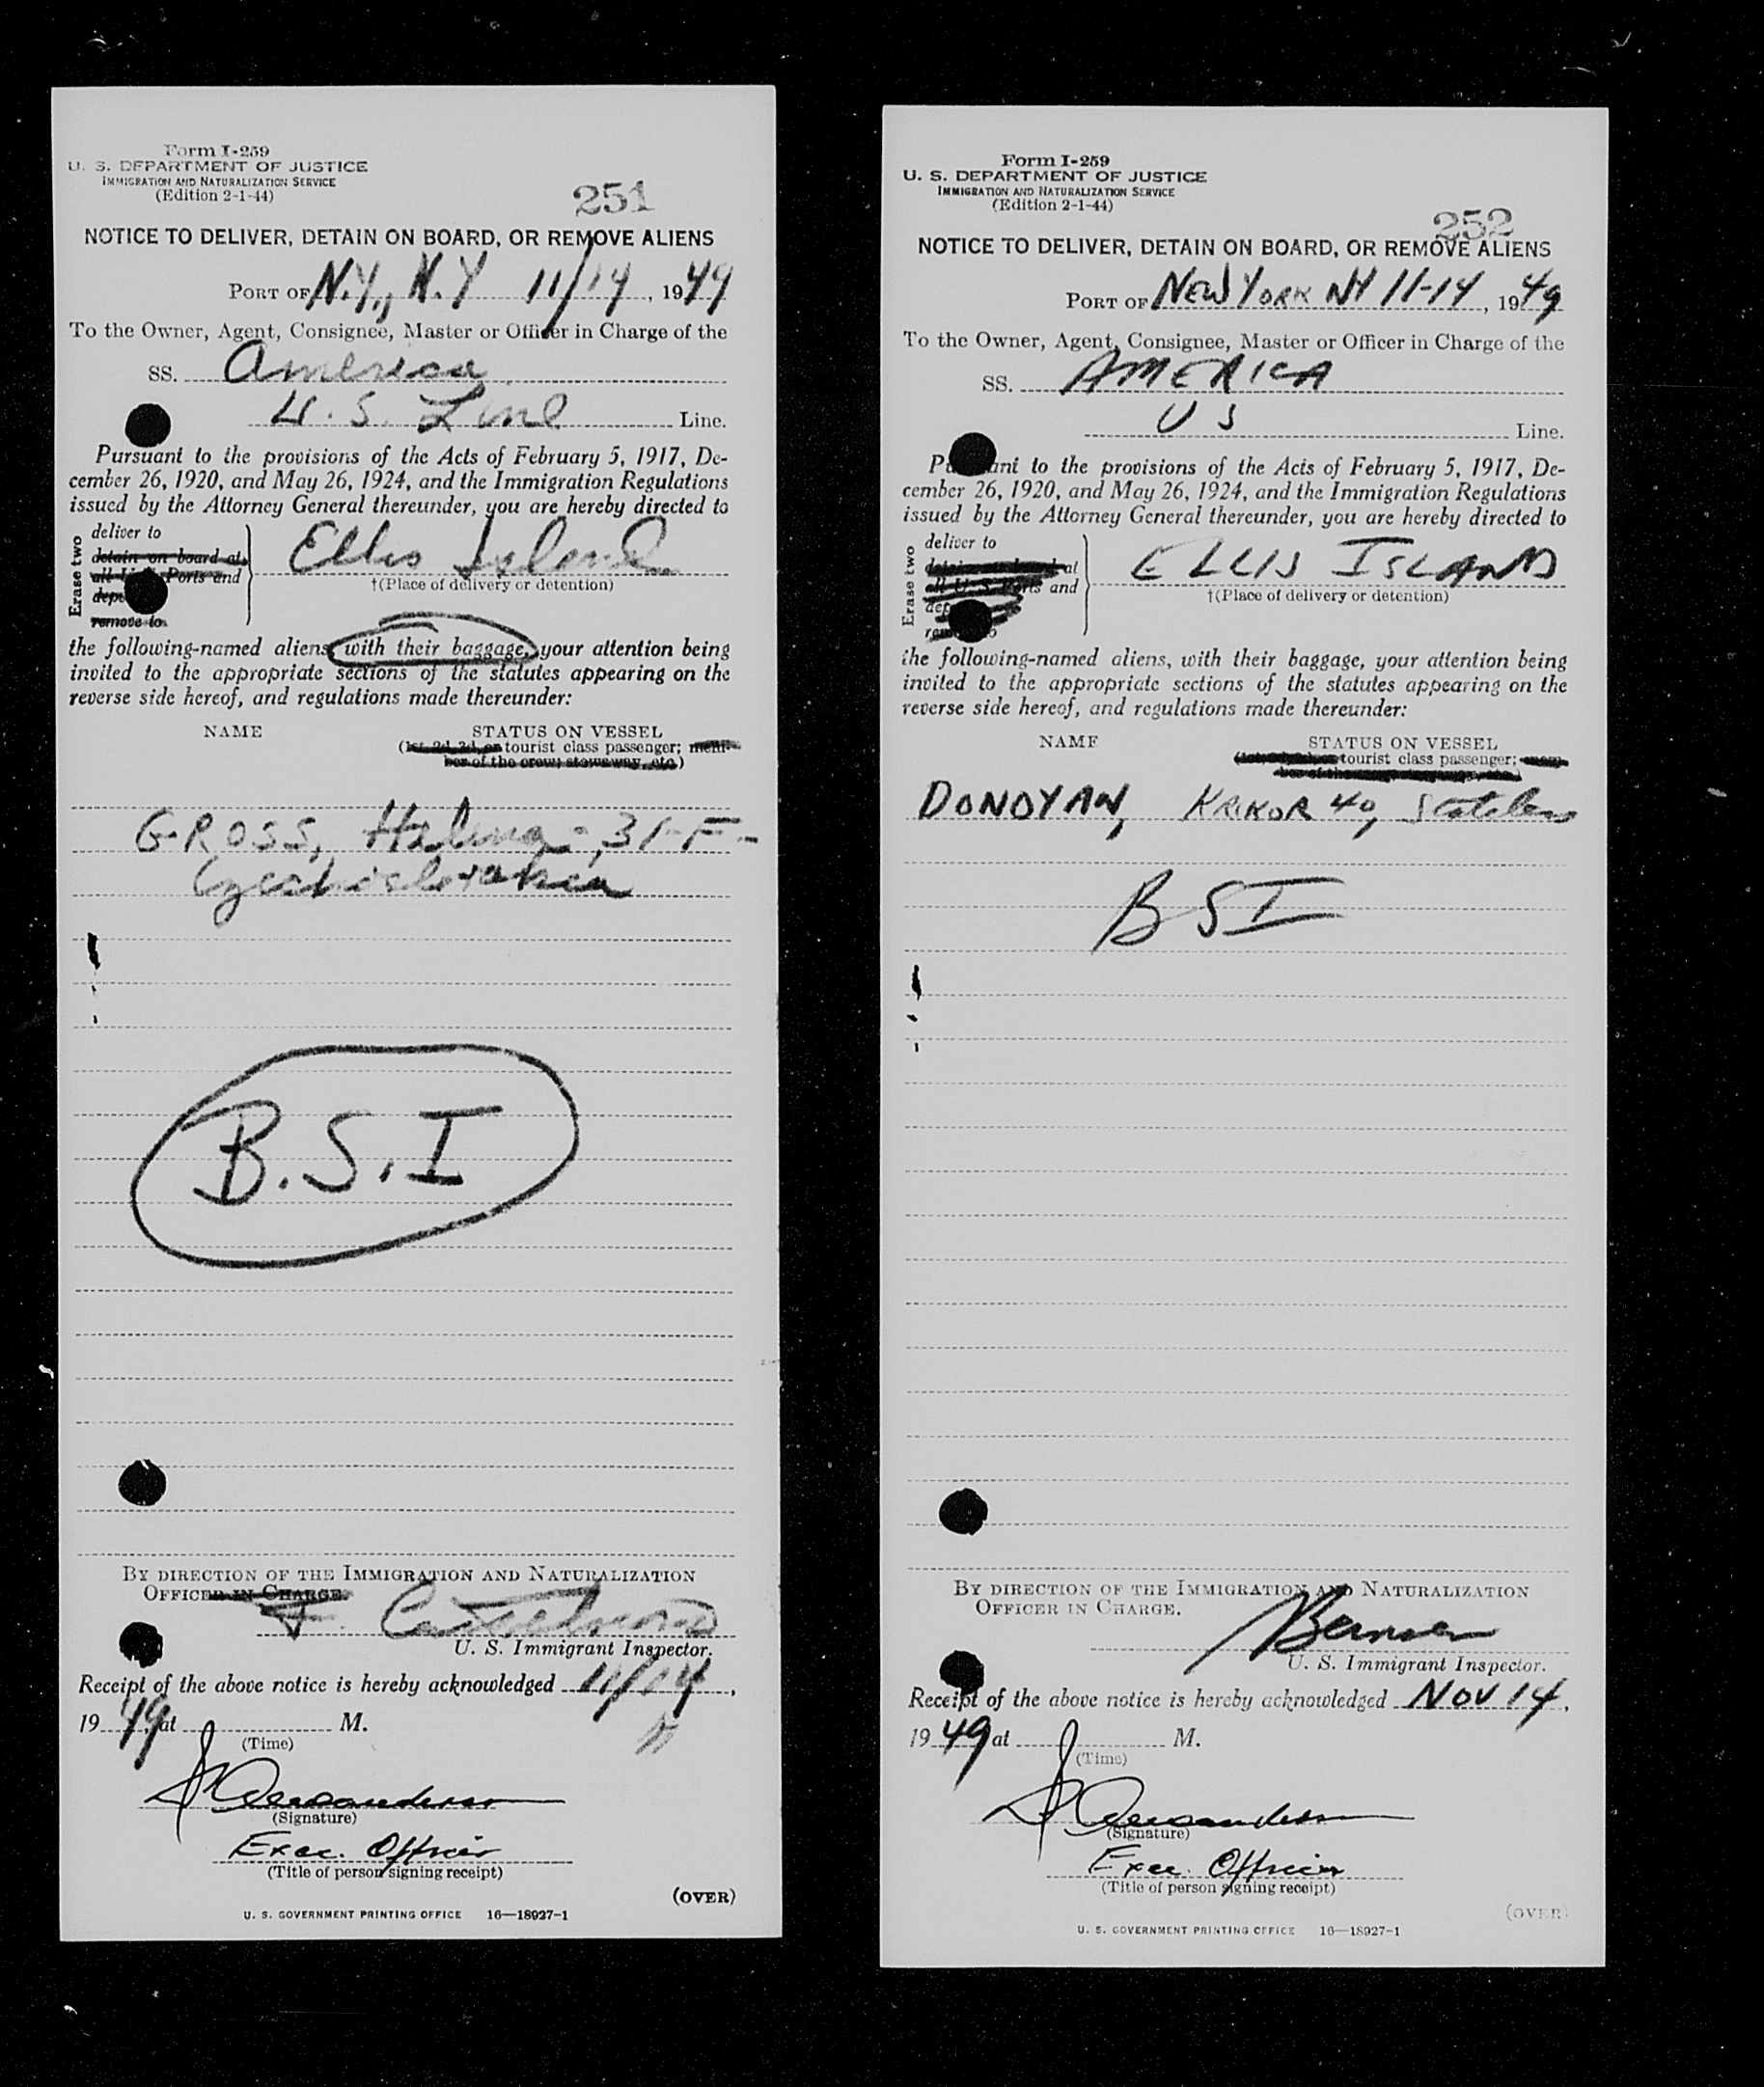 Form I-259
U. S. DEPARTMENT OF JUSTICE
IMMIGRATION AND NATURALIZATION SERVICE
(Edition 2-1-44)
251
NOTICE TO DELIVER, DETAIN ON BOARD, OR REMOVE ALIENS
PORT OF N.Y., N.Y 11/14, 1949
To the Owner, Agent, Consignee, Master or Officer in Charge of the
SS. America
U.S. Line Line.
Pursuant to the provisions of the Acts of February 5, 1917, De-
cember 26, 1920, and May 26, 1924, and the Immigration Regulations
issued by the Attorney General thereunder, you are hereby directed to
Erase two
deliver to
detain on board at
all U. S. Ports and
remove to
Ellis Island
†(Place of delivery or detention)
the following-named aliens, with their baggage, your attention being
invited to the appropriate sections of the statutes appearing on the
reverse side hereof, and regulations made thereunder:
NAME STATUS ON VESSEL
(1st, 2d, 3d, or tourist class passenger; mem-
ber of the crew; stowaway, etc.)
GROSS, Helena - 31-F-
Czechoslovakia
B.S.I
BY DIRECTION OF THE IMMIGRATION AND NATURALIZATION
OFFICER IN CHARGE.
U. S. Immigrant Inspector.
Receipt of the above notice is hereby acknowledged 11/14,
1949, at M.
(Time)
(Signature)
Exec. Officer
(Title of person signing receipt)
(OVER)
U. S. GOVERNMENT PRINTING OFFICE 16—18927-1
Form I-259
U. S. DEPARTMENT OF JUSTICE
IMMIGRATION AND NATURALIZATION SERVICE
(Edition 2-1-44)
252
NOTICE TO DELIVER, DETAIN ON BOARD, OR REMOVE ALIENS
PORT OF NEW YORK NY 11-14, 1949
To the Owner, Agent, Consignee, Master or Officer in Charge of the
SS. AMERICA
US Line.
Pursuant to the provisions of the Acts of February 5, 1917, De-
cember 26, 1920, and May 26, 1924, and the Immigration Regulations
issued by the Attorney General thereunder, you are hereby directed to
Erase two
deliver to
detain on board at
all U. S. Ports and
remove to
ELLIS ISLAND
†(Place of delivery or detention)
the following-named aliens, with their baggage, your attention being
invited to the appropriate sections of the statutes appearing on the
reverse side hereof, and regulations made thereunder:
NAME STATUS ON VESSEL
tourist class passenger;
DONOYAN, KRIKOR 40, Stateless
BSI
BY DIRECTION OF THE IMMIGRATION AND NATURALIZATION
OFFICER IN CHARGE.
U. S. Immigrant Inspector.
Receipt of the above notice is hereby acknowledged NOV 14,
1949 at M.
(Time)
(Signature)
Exec. Officer
(Title of person signing receipt)
(OVER)
U. S. GOVERNMENT PRINTING OFFICE 16—18927-1